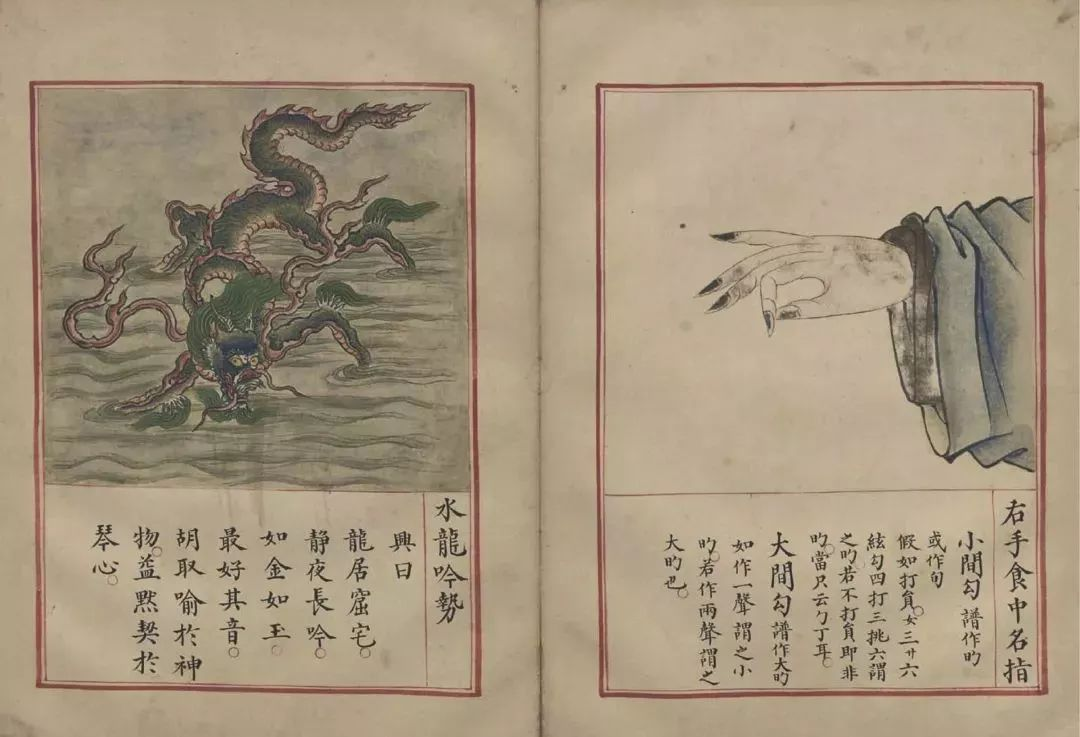 右手食中名指
小間勾 譜作旳
或作句
假如打貟。女三廾六
絃勾四打三挑六謂
之旳。若不打貟即非
旳。當只云勹丁耳。
大間勾 譜作大旳
如作一聲謂之小
旳。若作兩聲謂之
大旳也。
水龍吟勢
興曰
龍居窟宅。
静夜長吟。
如金如玉。
最好其音。
胡取喻於神
物。葢黙契於
琴心。